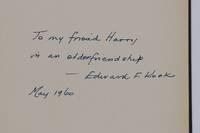 To my friend Harry
in an older friendship
— Edward F. Kook
May 1960